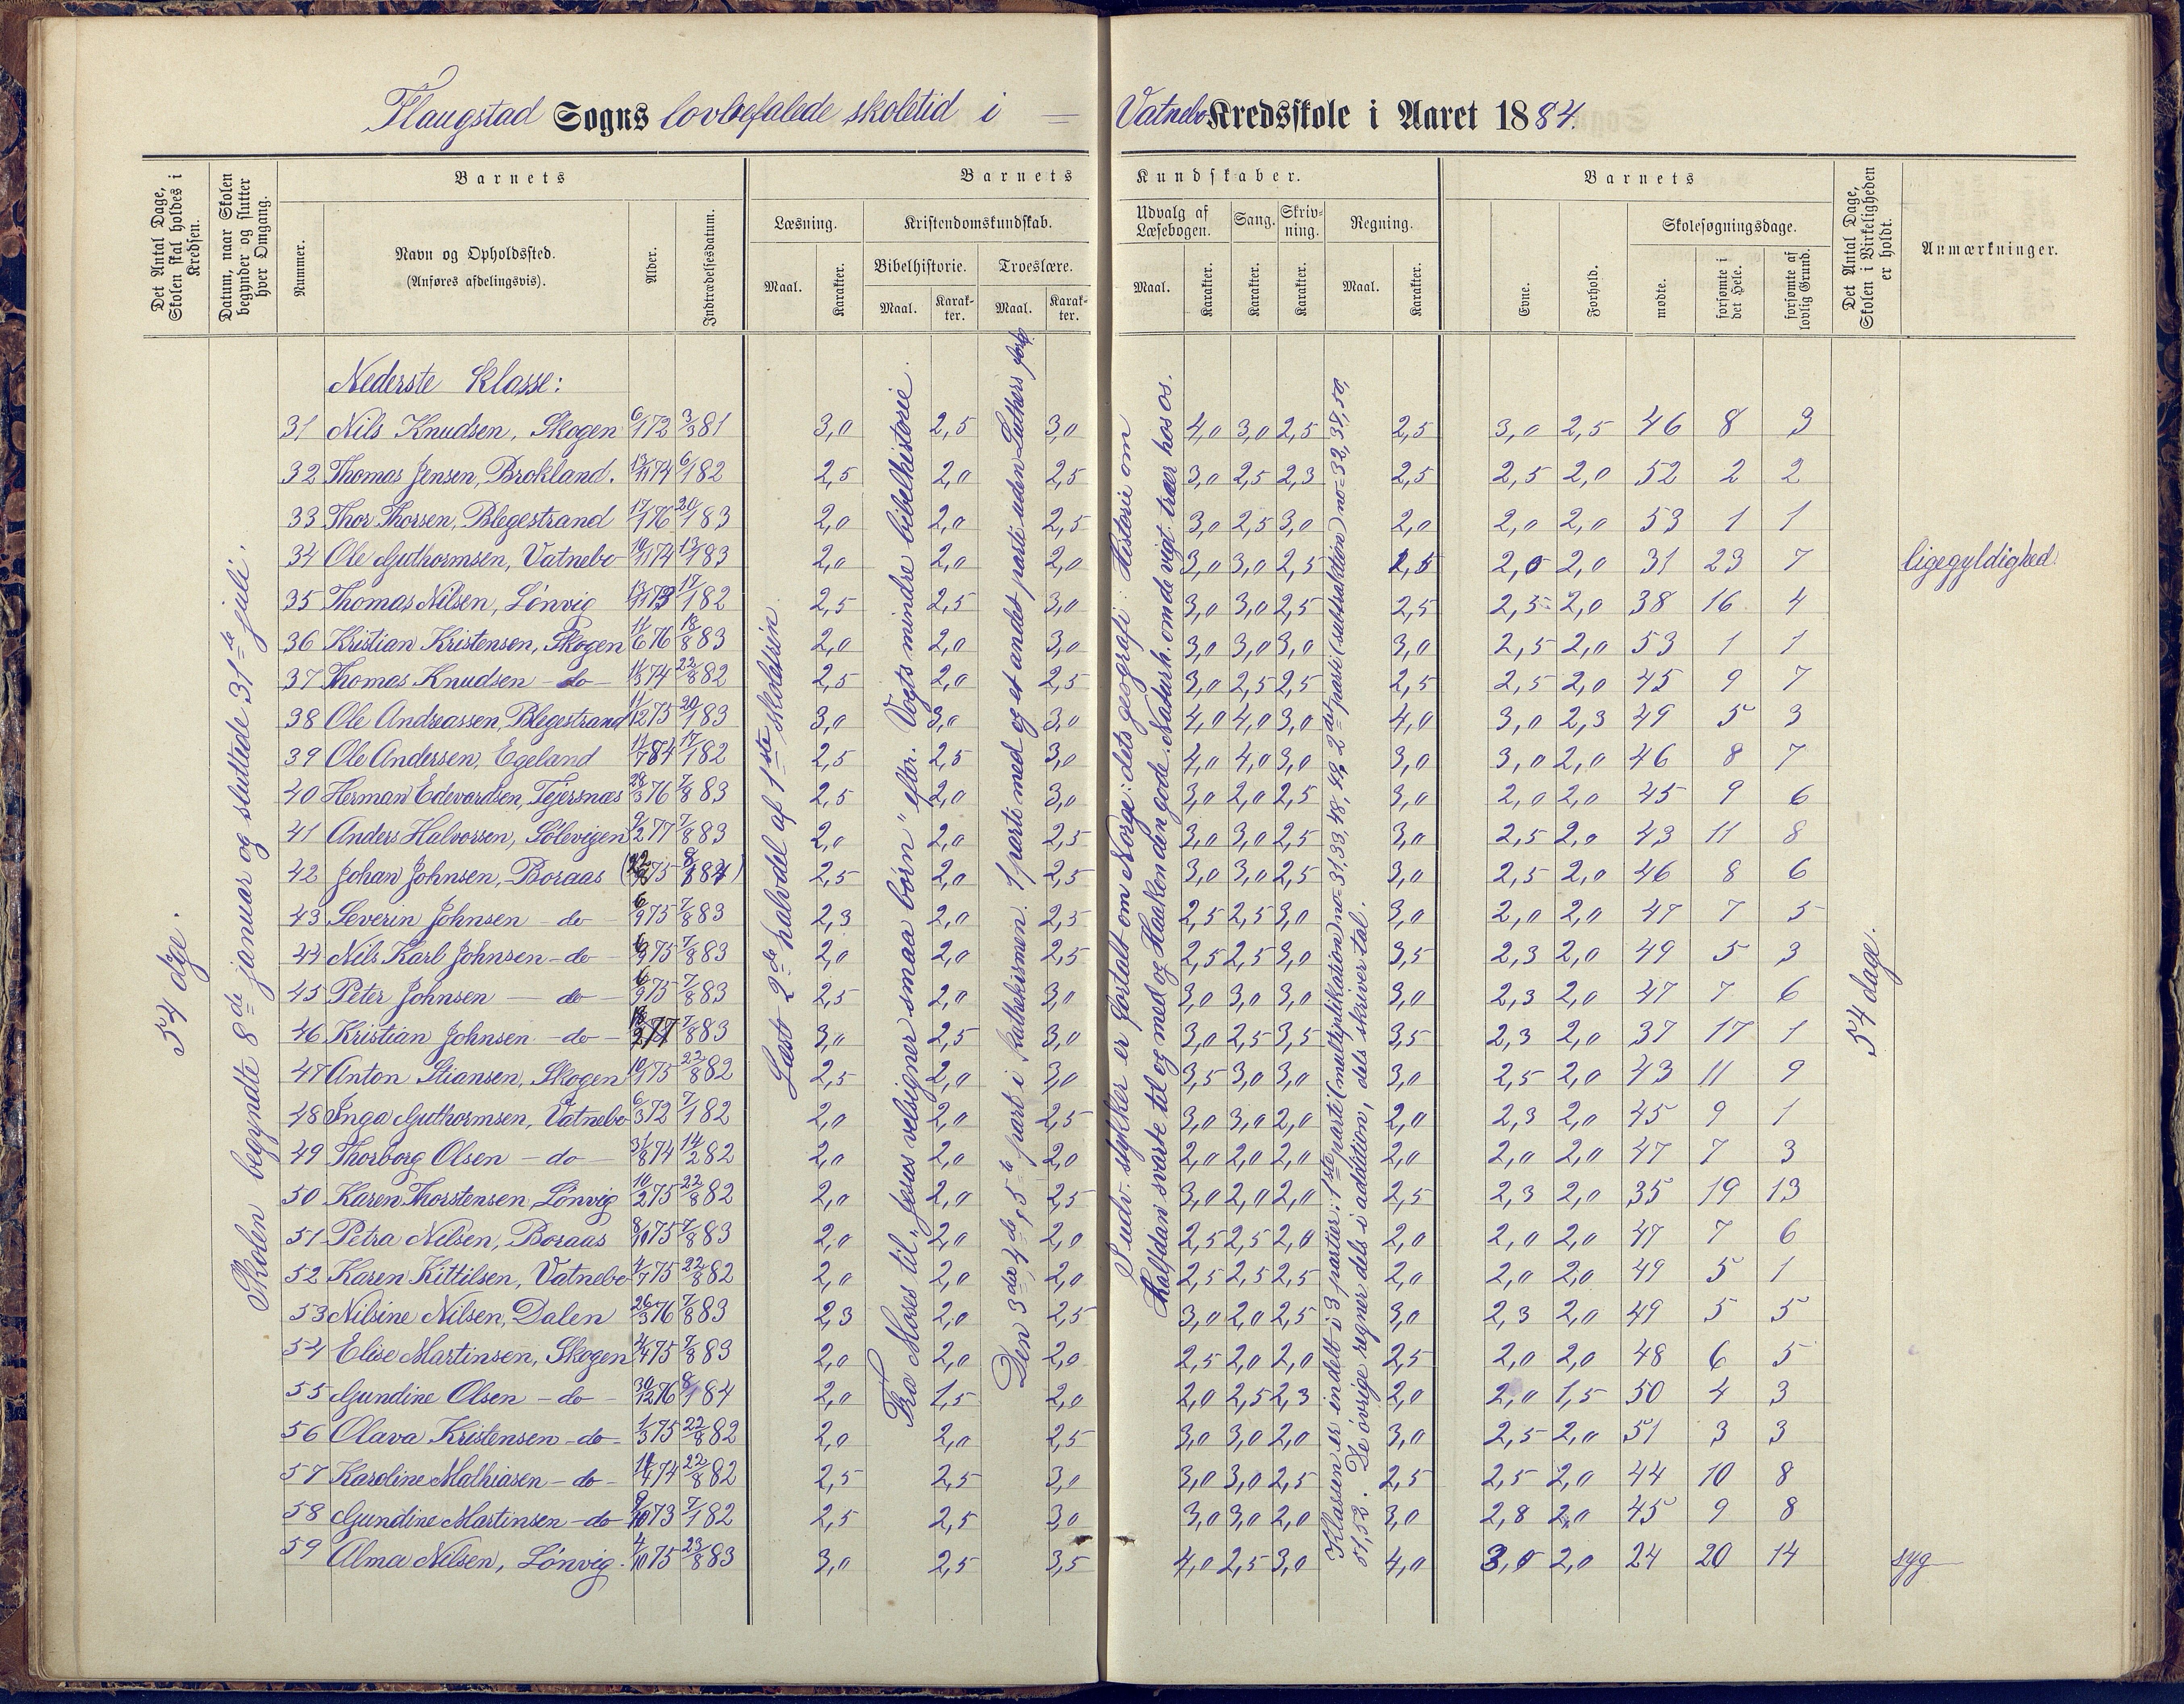 Flaugstad Sogns lovbefalede skoletid i — Vatnebo Kredsskole i Aaret 1884.
Det Antal Dage, Skolen skal holdes i Kredsen.
Datum, naar Skolen begynder og slutter hver Omgang.
Barnets
Nummer.
Navn og Opholdssted.
(Anføres afdelingsvis).
Alder.
Indtrædelsesdatum.
Barnets Kundskaber.
Læsning.
Maal.
Karakter.
Kristendomskundskab.
Bibelhistorie.
Maal.
Karakter.
Troeslære.
Maal.
Karakter.
Udvalg af Læsebogen.
Maal.
Karakter.
Sang.
Karakter.
Skrivning.
Karakter.
Regning.
Maal.
Karakter.
Barnets
Evne.
Forhold.
Skolesøgningsdage.
mødte.
forsømte i det Hele.
forsømte af lovlig Grund.
Det Antal Dage, Skolen i Virkeligheden er holdt.
Anmærkninger.
54 dge.
Skolen begyndte 8de januar og sluttede 31te juli.
Læst 2de halvdel af 1ste skoletrin
Fra Moses til „Jesus velsigner smaa børn" efter Vogts mindre bibelhistorie.
Den 3die, 4de, 5te part i Kathekismen. 1 parti med og et andet parti uden Luthers fork.
I udv. stykker er fortalt om Norge: dets geografi. Historie om
Halfdan svarte til og med og Haaken den gode. Naturh. om de vigt. træer hos os.
Klassen er inddelt i 3 partier: 1ste parti (multiplikation) no= 31,33,48,49, 2det parti (subtraktion) no= 32,37,50,
51,52. De øvrige regner dels i addition, dels skriver tal.
54 dage.
Nederste Klasse:
31 Nils Knudsen, Skogen 6/1 72 3/3 81 3,0 2,5 3,0 4,0 3,0 2,5 2,5 3,0 2,5 46 8 3
32 Thomas Jensen, Brokland. 13/11 74 6/1 82 2,5 2,0 2,5 3,0 2,5 2,3 2,5 2,5 2,0 52 2 2
33 Thor Thorsen, Blegestrand 17/1 76 20/1 83 2,0 2,0 2,5 3,0 2,5 3,0 2,0 2,0 2,0 53 1 1
34 Ole Guthormsen, Vatnebo 10/11 74 13/1 83 2,0 2,0 2,0 3,0 3,0 2,5 2,5 2,0 2,0 31 23 7 ligegyldighed.
35 Thomas Nilsen, Lönvig 13/11 73 17/1 82 2,5 2,5 3,0 3,0 3,0 2,5 2,5 2,5 2,0 38 16 4
36 Kristian Kristensen, Skogen 11/6 76 18/8 83 2,0 2,0 3,0 3,0 3,0 3,0 3,0 2,5 2,0 53 1 1
37 Thomas Knudsen - do - 11/3 74 22/8 82 2,5 2,0 2,5 3,0 2,5 2,5 2,5 2,5 2,0 45 9 7
38 Ole Andreassen, Blegestrand 11/12 75 20/1 83 3,0 3,0 3,0 4,0 4,0 3,0 4,0 3,0 2,3 49 5 3
39 Ole Andersen, Egeland 17/1 82 2,5 2,5 3,0 4,0 4,0 3,0 3,0 3,0 2,0 46 8 7
40 Herman Edevardsen, Tejersnæs 28/3 76 7/8 83 2,5 2,0 3,0 3,0 2,0 2,5 3,0 2,0 2,0 45 9 6
41 Anders Halvorsen, Sølevigen 9/2 77 7/8 83 2,0 2,0 2,5 3,0 3,0 2,5 3,0 2,5 2,0 43 11 8
42 Johan Johnsen, Boraas 75 84) 2,5 2,0 2,5 3,0 3,0 2,5 3,0 2,5 2,0 46 8 6
43 Severin Johnsen - do - 6/9 75 7/8 83 2,3 2,0 2,5 2,5 2,5 3,0 3,0 2,0 2,0 47 7 5
44 Nils Karl Johnsen - do - 6/9 75 7/8 83 2,0 2,0 2,5 2,5 2,5 3,0 3,5 2,3 2,0 49 5 3
45 Peter Johnsen - do - 6/9 75 7/8 83 2,5 2,0 3,0 3,0 3,0 3,0 3,0 2,3 2,0 47 7 6
46 Kristian Johnsen - do - 18/2 77 7/8 83 3,0 2,5 3,0 3,0 2,5 3,5 3,5 2,3 2,0 37 17 1
47 Anton Stiansen, Skogen 10/1 75 22/8 82 2,5 2,0 3,0 3,5 3,0 3,0 3,0 2,5 2,0 43 11 9
48 Inga Guthormsen, Vatnebo 6/3 72 7/1 82 2,0 2,0 2,5 3,0 3,0 2,0 2,0 2,3 2,0 45 9 1
49 Thorborg Olsen - do - 31/8 74 14/2 82 2,0 2,0 2,0 2,0 2,0 2,0 2,0 2,0 2,0 47 7 3
50 Karen Thorstensen, Lönvig 10/2 75 22/8 82 2,0 2,0 2,5 3,0 2,0 2,0 2,5 2,3 2,0 35 19 13
51 Petra Nilsen, Boraas 8/10 75 7/8 83 2,0 2,0 2,0 2,5 2,5 2,0 2,0 2,0 2,0 47 7 6
52 Karen Kittilsen, Vatnebo 4/7 75 22/8 82 2,0 2,0 2,0 2,5 2,5 2,5 2,0 2,0 2,0 49 5 1
53 Nilsine Nilsen, Dalen 26/3 76 7/8 83 2,3 2,0 2,5 3,0 2,0 2,5 3,0 2,3 2,0 49 5 5
54 Elise Martinsen, Skogen 4/4 75 7/8 83 2,0 2,0 2,0 2,5 2,0 2,0 2,5 2,0 2,0 48 6 5
55 Gundine Olsen - do - 30/12 76 8/1 84 2,0 1,5 2,0 2,0 2,5 2,3 2,0 2,0 1,5 50 4 3
56 Olava Kristensen - do - 1/3 75 22/8 82 2,0 2,0 2,5 3,0 3,0 2,0 3,0 2,5 2,0 51 3 3
57 Karoline Mathiasen - do - 74 22/8 82 2,5 2,5 3,0 3,0 3,0 2,5 2,5 2,5 2,0 44 10 8
58 Gundine Martinsen - do - 9/10 73 7/1 82 2,5 2,5 3,0 3,0 3,0 2,0 3,0 2,8 2,0 45 9 8
59 Alma Nilsen, Lönvig. 4/10 75 23/8 83 3,0 2,5 3,5 4,0 2,5 3,0 4,0 3,0 2,0 24 20 14 syg